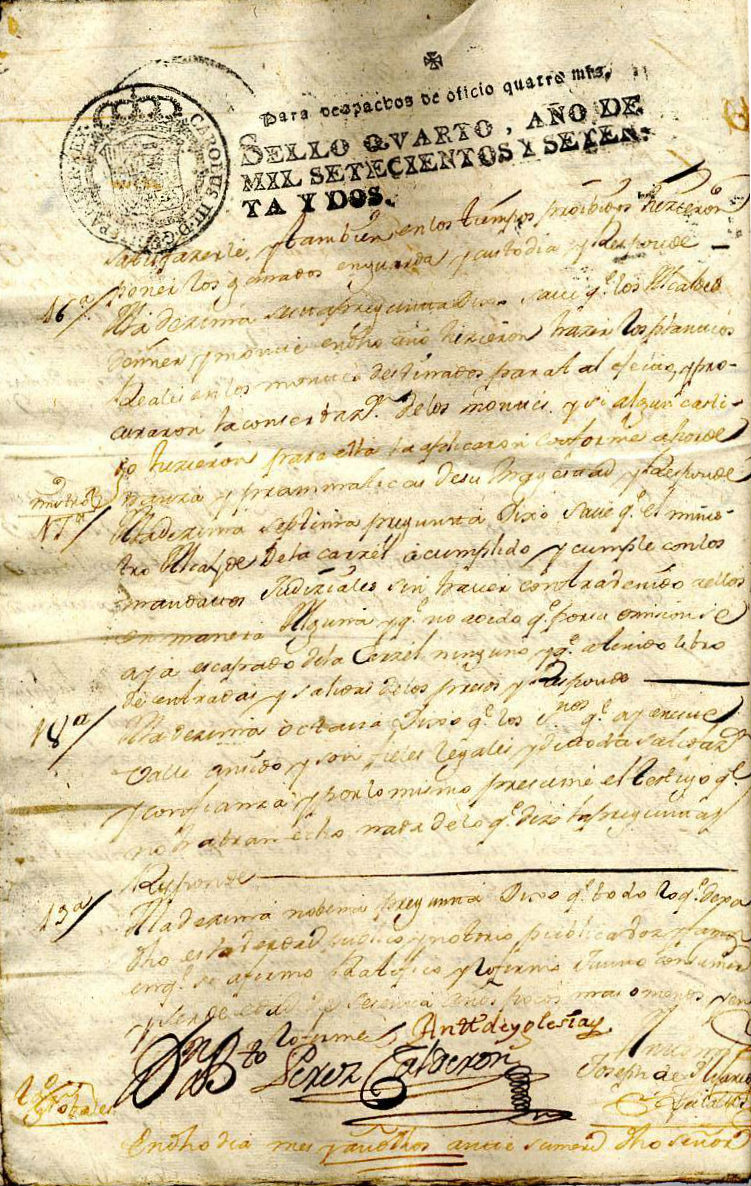 ✠
Para despachos de oficio quatro mrs.
SELLO QVARTO, AÑO DE
MIL SETECIENTOS Y SETEN-
TA Y DOS.
CAROLUS III D. G. HISPANIAR. REX
satisfazerle, y tambien en los tiempos proibidos hizieron
poner los ganados en guarda y custodia y Responde
16ª/ A la dezima sesta pregunta Dixo save q.e los Alcaldes
y montes en dho año hizieron hazer los plantios
Reales en los montes destinados para tal efecto, y pro-
curaron la conserbaz.n de los montes y si algun casti-
go hizieron para ello la aplicaron conforme a horde
nanza y prammaticas de su Magestad y Responde
17ª/ A la dezima septima pregunta Dixo save q.e el minis-
tro Alcayde de la carzel a cumplido y cumple con los
mandatos Judiziales sin haver contravenido a ellos
en manera Alguna y q.e no a oido q.e por su omision se
aya escapado de la Carzel ninguno y q.e a tenido libro
de entradas y salidas de los presos y Responde
18ª/ A la dezima octava Dixo q.e los ss.nos q.e ay en este
Valle an sido y son fieles legales y de toda satisfaz.n
y confianza y por lo mismo presume el testigo q.e
no habran echo nada de lo q.e dize la pregunta y
Responde
19ª/ A la dezima nobena pregunta Dixo q.e todo lo q.e deja
dho es la verdad publico y notorio publica voz y fama
en q.e se afirmo Ratifico y lo firmo Junto con su mrd
y ser de edad de sesenta años poco mas o menos
Perez Calderon
Ant.º de yglesias
Joseph de
En dho dia mes y año dhos ante su merd dho señor